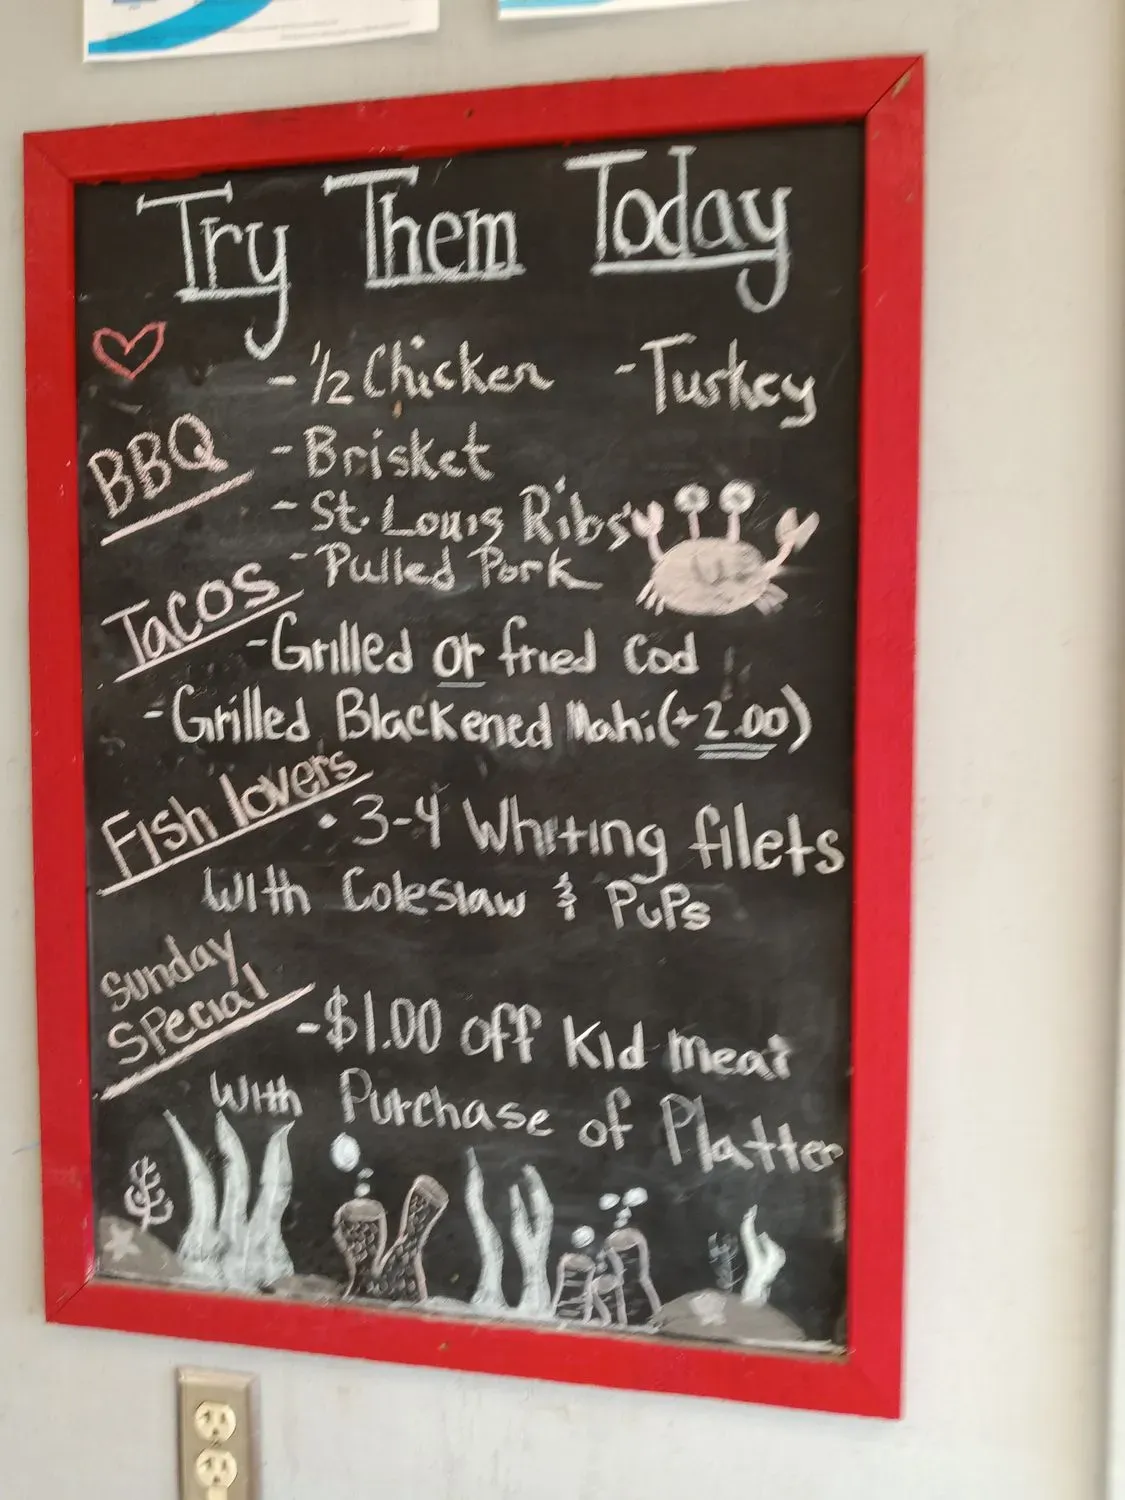 Try Them Today
- 1/2 Chicken - Turkey
BBQ
- Brisket
- St. Louis Ribs
- Pulled Pork
Tacos
- Grilled or fried Cod
- Grilled Blackened Mahi (+ 2.00)
Fish lovers
• 3-4 Whiting filets
with Coleslaw & PuPs
Sunday
Special
- $1.00 off Kid meal
with Purchase of Platter